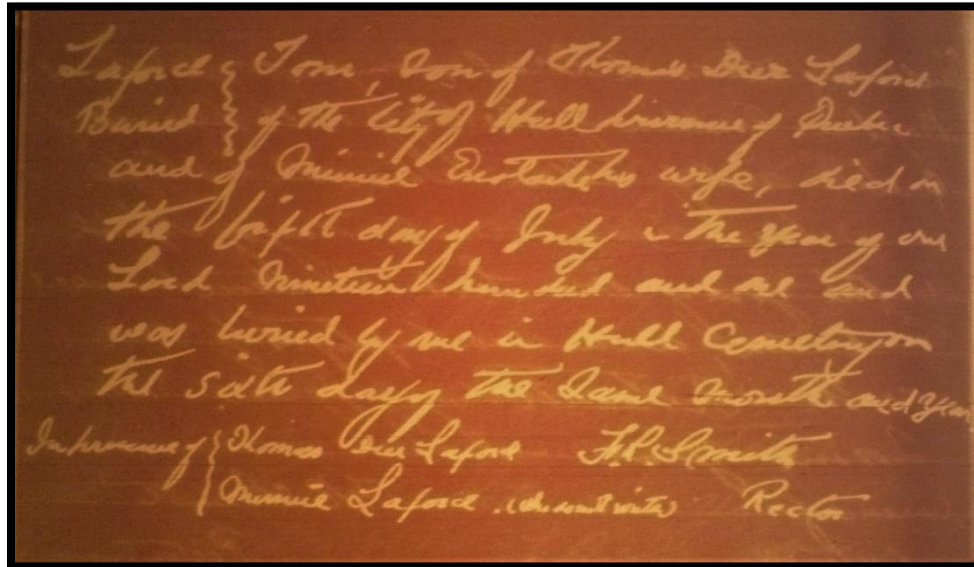 Laford } Tom, son of Thomas Dier Laford
Buried } of the City of Hull province of Quebec
and of Minnie his wife, died on
the fifth day of July in the Year of our
Lord Nineteen hundred and one and
was buried by me in Hull Cemetery on
the sixth day of the same month and year
In presence of { Thomas Dier Laford F.R. Smith
Minnie Laford Rector